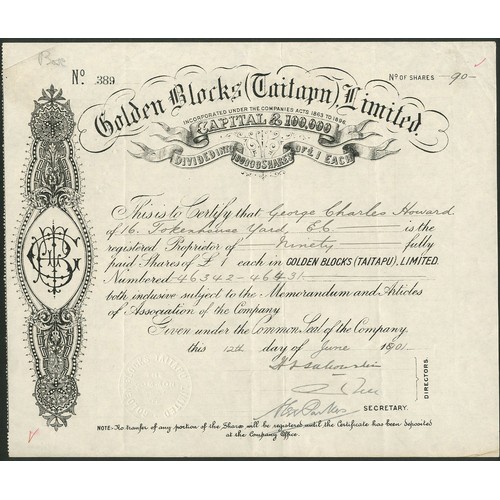 No. 389
No OF SHARES -90-
Golden Blocks (Taitapu), Limited.
INCORPORATED UNDER THE COMPANIES ACTS 1863 TO 1894.
CAPITAL £100,000
DIVIDED INTO 100000 SHARES OF £1 EACH
This is to Certify that George Charles Howard
of 16, Tokenhouse Yard, E.C. is the
registered Proprietor of Ninety fully
paid Shares of £1 each in GOLDEN BLOCKS (TAITAPU), LIMITED.
Numbered 46342-46431
both inclusive subject to the Memorandum and Articles
of Association of the Company
Given under the Common Seal of the Company.
this 12th day of June 1901
DIRECTORS.
SECRETARY.
NOTE:-No transfer of any portion of the Shares will be registered until the Certificate has been deposited
at the Company's Office.